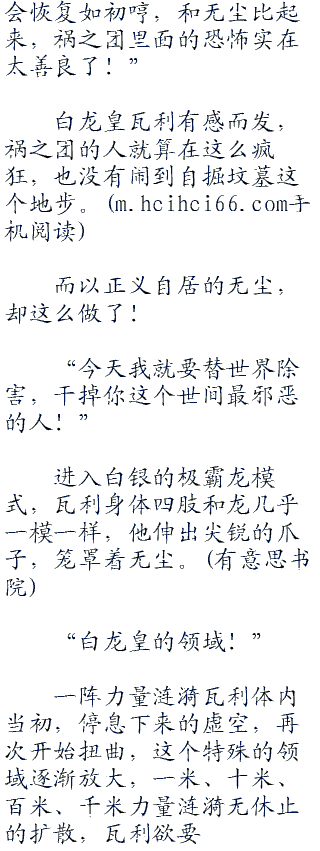 会恢复如初哼，和无尘比起
来，祸之团里面的恐怖实在
太善良了！”
白龙皇瓦利有感而发，
祸之团的人就算在这么疯
狂，也没有闹到自掘坟墓这
个地步。(m.hcihci66.com手
机阅读)
而以正义自居的无尘，
却这么做了！
“今天我就要替世界除
害，干掉你这个世间最邪恶
的人！”
进入白银的极霸龙模
式，瓦利身体四肢和龙几乎
一模一样，他伸出尖锐的爪
子，笼罩着无尘。(有意思书
院)
“白龙皇的领域！”
一阵力量涟漪瓦利体内
当初，停息下来的虚空，再
次开始扭曲，这个特殊的领
域逐渐放大，一米、十米、
百米、千米力量涟漪无休止
的扩散，瓦利欲要